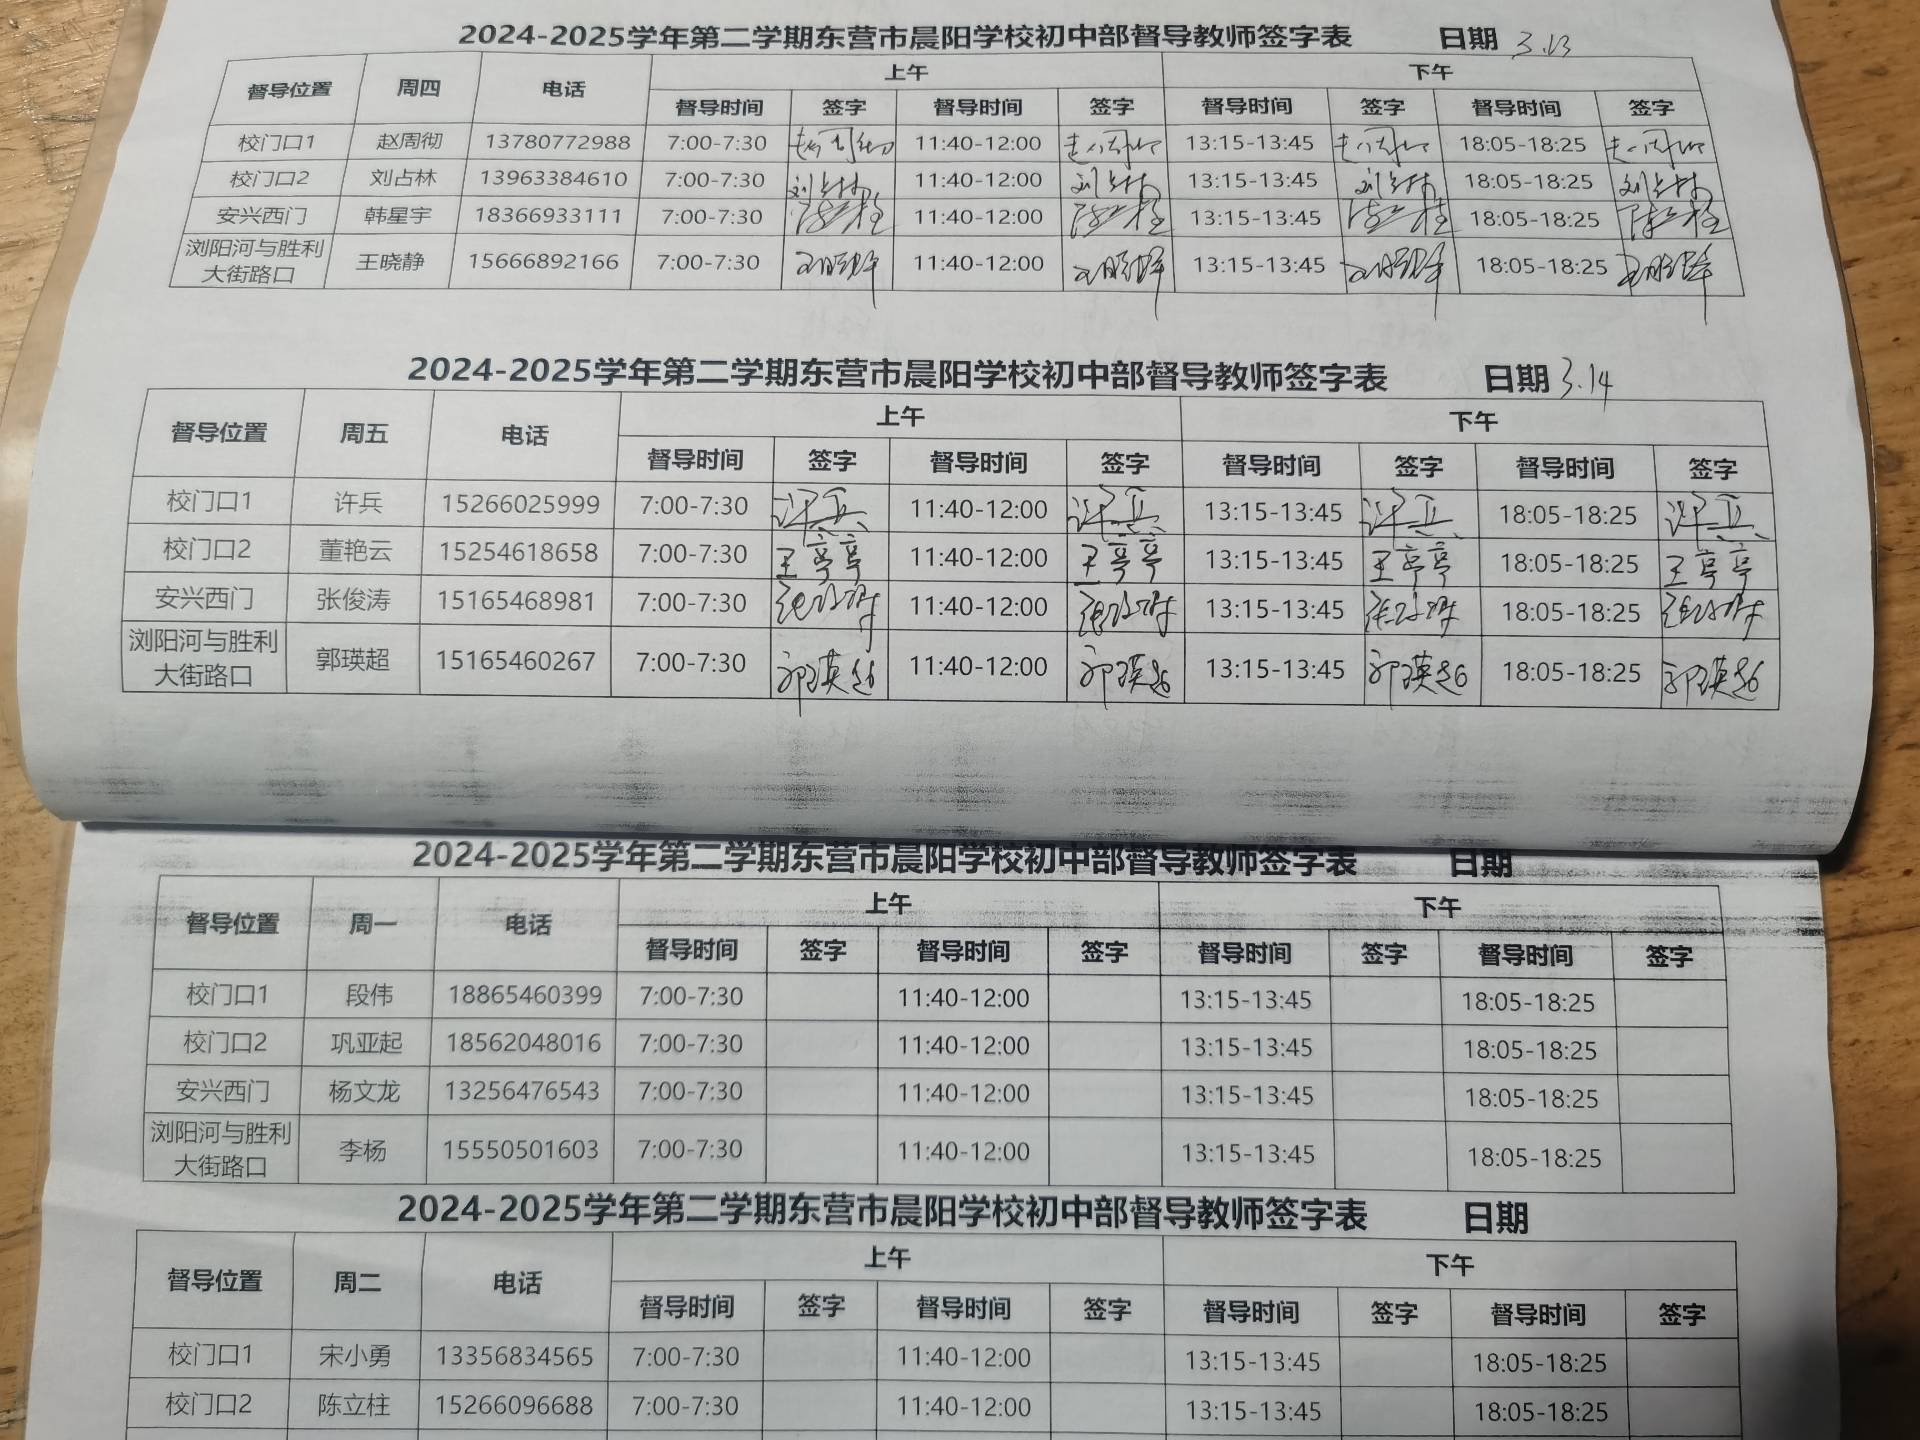 2024-2025学年第二学期东营市晨阳学校初中部督导教师签字表 日期 3.13
督导位置 周四 电话 上午 下午
督导时间 签字 督导时间 签字 督导时间 签字 督导时间 签字
校门口1 赵周彻 13780772988 7:00-7:30 赵周彻 11:40-12:00 13:15-13:45 18:05-18:25
校门口2 刘占林 13963384610 7:00-7:30 刘占林 11:40-12:00 刘占林 13:15-13:45 刘占林 18:05-18:25 刘占林
安兴西门 韩星宇 18366933111 7:00-7:30 11:40-12:00 13:15-13:45 18:05-18:25
浏阳河与胜利
大街路口 王晓静 15666892166 7:00-7:30 11:40-12:00 13:15-13:45 18:05-18:25
2024-2025学年第二学期东营市晨阳学校初中部督导教师签字表 日期 3.14
督导位置 周五 电话 上午 下午
督导时间 签字 督导时间 签字 督导时间 签字 督导时间 签字
校门口1 许兵 15266025999 7:00-7:30 许兵 11:40-12:00 许兵 13:15-13:45 许兵 18:05-18:25 许兵
校门口2 董艳云 15254618658 7:00-7:30 王亭亭 11:40-12:00 王亭亭 13:15-13:45 王亭亭 18:05-18:25 王亭亭
安兴西门 张俊涛 15165468981 7:00-7:30 张俊涛 11:40-12:00 张俊涛 13:15-13:45 张俊涛 18:05-18:25 张俊涛
浏阳河与胜利
大街路口 郭瑛超 15165460267 7:00-7:30 郭瑛超 11:40-12:00 郭瑛超 13:15-13:45 郭瑛超 18:05-18:25 郭瑛超
2024-2025学年第二学期东营市晨阳学校初中部督导教师签字表 日期
督导位置 周一 电话 上午 下午
督导时间 签字 督导时间 签字 督导时间 签字 督导时间 签字
校门口1 段伟 18865460399 7:00-7:30 11:40-12:00 13:15-13:45 18:05-18:25
校门口2 巩亚起 18562048016 7:00-7:30 11:40-12:00 13:15-13:45 18:05-18:25
安兴西门 杨文龙 13256476543 7:00-7:30 11:40-12:00 13:15-13:45 18:05-18:25
浏阳河与胜利
大街路口 李杨 15550501603 7:00-7:30 11:40-12:00 13:15-13:45 18:05-18:25
2024-2025学年第二学期东营市晨阳学校初中部督导教师签字表 日期
督导位置 周二 电话 上午 下午
督导时间 签字 督导时间 签字 督导时间 签字 督导时间 签字
校门口1 宋小勇 13356834565 7:00-7:30 11:40-12:00 13:15-13:45 18:05-18:25
校门口2 陈立柱 15266096688 7:00-7:30 11:40-12:00 13:15-13:45 18:05-18:25